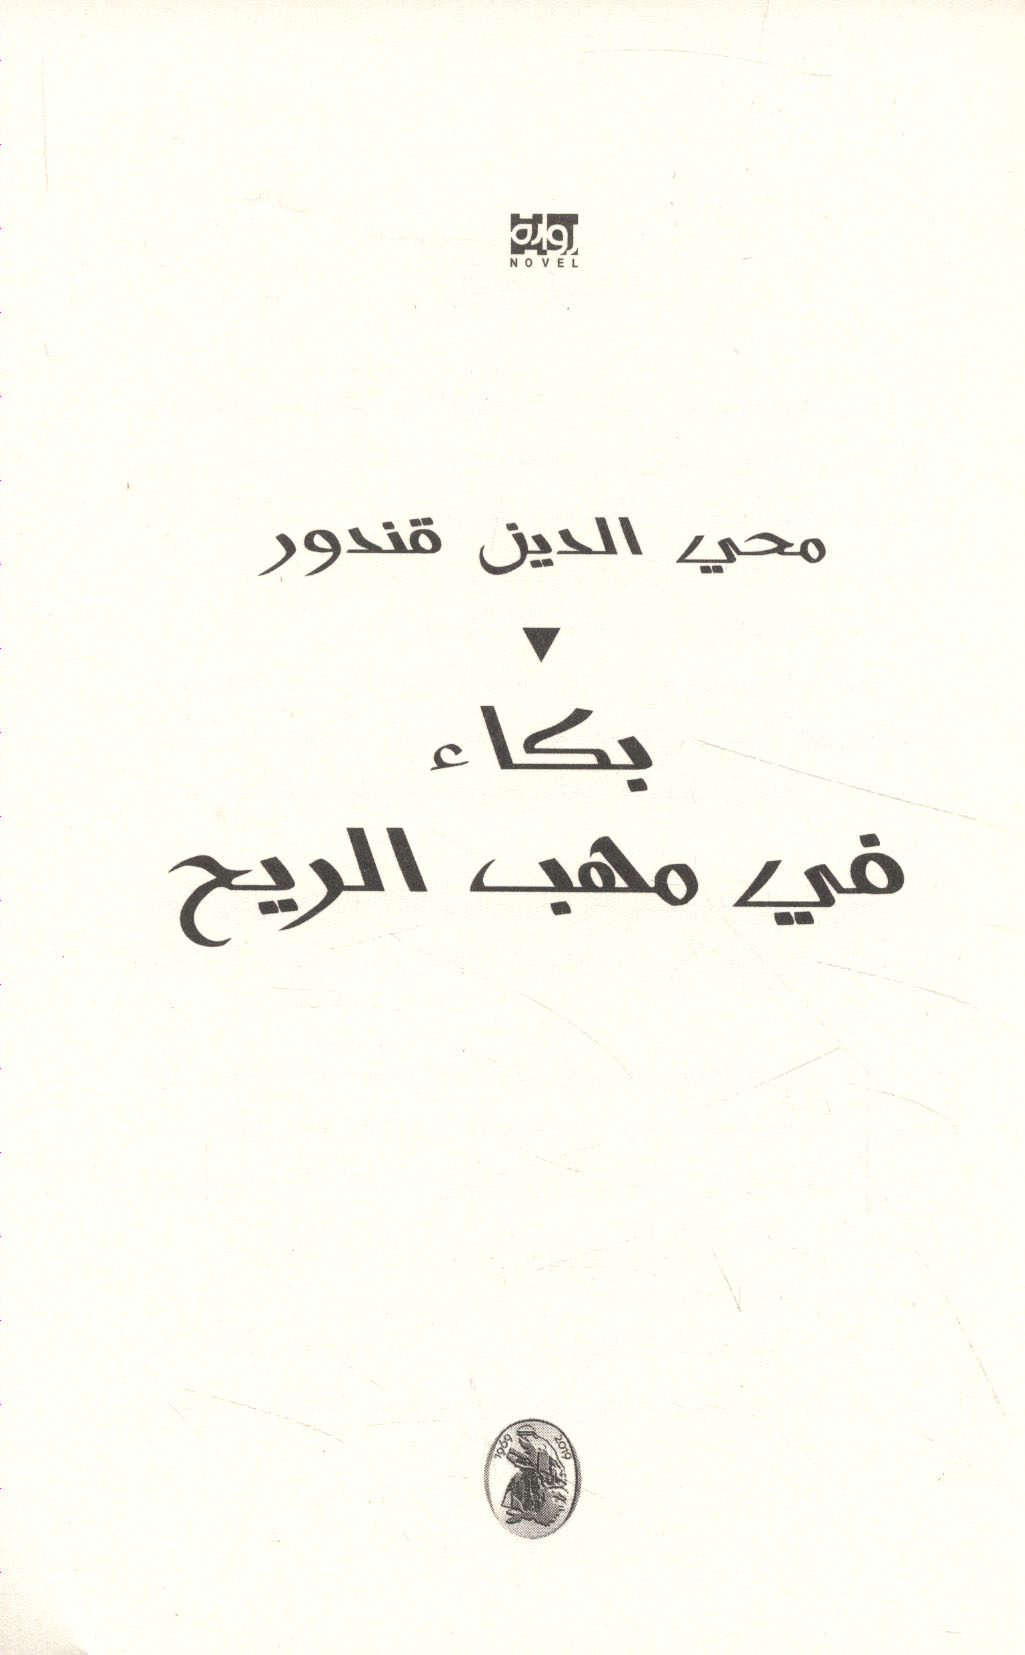 رواية
NOVEL
محي الدين قندور
بكاء
في مهب الريح
1969 2019